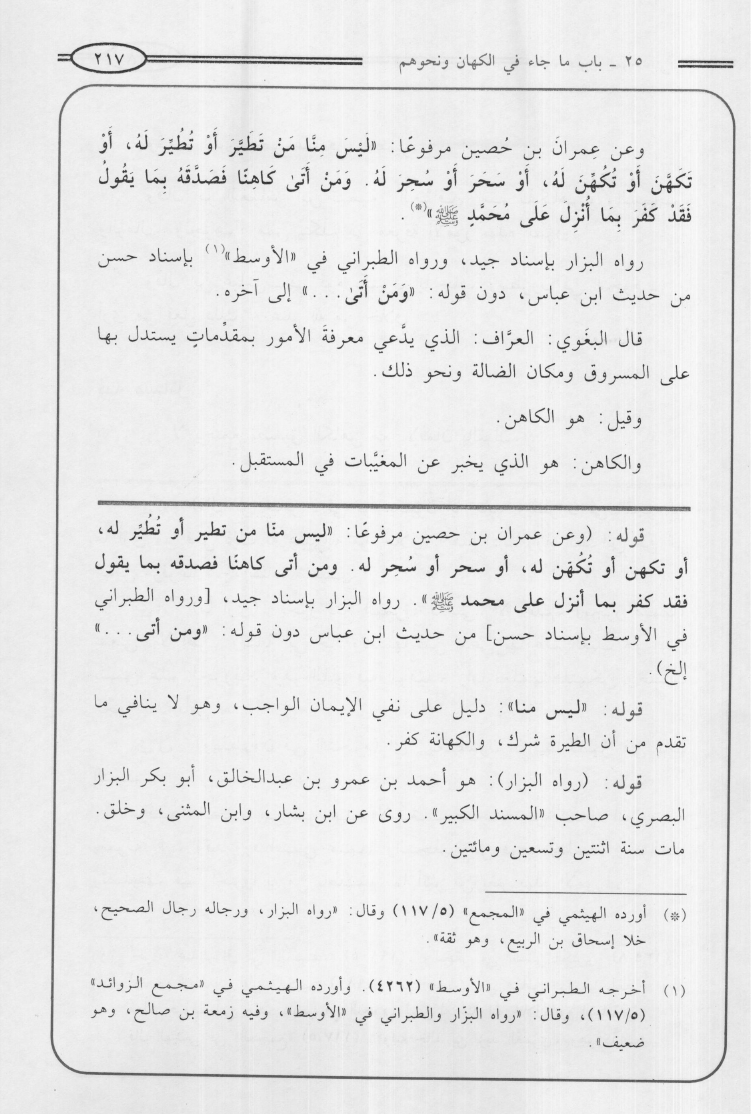 ٢٥ ـ باب ما جاء في الكهان ونحوهم
٢١٧
وعن عِمرانَ بن حُصين مرفوعًا: «لَيْسَ مِنَّا مَنْ تَطَيَّرَ أَوْ تُطُيِّرَ لَهُ، أَوْ
تَكَهَّنَ أَوْ تُكُهِّنَ لَهُ، أَوْ سَحَرَ أَوْ سُحِرَ لَهُ. وَمَنْ أَتَىٰ كَاهِنًا فَصَدَّقَهُ بِمَا يَقُولُ
فَقَدْ كَفَرَ بِمَا أُنْزِلَ عَلَى مُحَمَّدٍ ﷺ»(*).
رواه البزار بإسناد جيد، ورواه الطبراني في «الأوسط»(١) بإسناد حسن
من حديث ابن عباس، دون قوله: «وَمَنْ أَتَىٰ...» إلى آخره.
قال البغَوي: العرَّاف: الذي يدَّعي معرفةَ الأمور بمقدِّماتٍ يستدل بها
على المسروق ومكان الضالة ونحو ذلك.
وقيل: هو الكاهن.
والكاهن: هو الذي يخبر عن المغيَّبات في المستقبل.
قوله: (وعن عمران بن حصين مرفوعًا: «ليس منّا من تطير أو تُطُيِّر له،
أو تكهن أو تُكُهّن له، أو سحر أو سُحِر له. ومن أتى كاهنًا فصدقه بما يقول
فقد كفر بما أنزل على محمد ﷺ». رواه البزار بإسناد جيد، [ورواه الطبراني
في الأوسط بإسناد حسن] من حديث ابن عباس دون قوله: «ومن أتى...»
إلخ).
قوله: «ليس منا»: دليل على نفي الإيمان الواجب، وهو لا ينافي ما
تقدم من أن الطيرة شرك، والكهانة كفر.
قوله: (رواه البزار): هو أحمد بن عمرو بن عبدالخالق، أبو بكر البزار
البصري، صاحب «المسند الكبير». روى عن ابن بشار، وابن المثنى، وخلق.
مات سنة اثنتين وتسعين ومائتين.
(*) أورده الهيثمي في «المجمع» (١١٧/٥) وقال: «رواه البزار، ورجاله رجال الصحيح،
خلا إسحاق بن الربيع، وهو ثقة».
(١) أخرجه الطبراني في «الأوسط» (٤٢٦٢). وأورده الهيثمي في «مجمع الزوائد»
(١١٧/٥)، وقال: «رواه البزّار والطبراني في «الأوسط»، وفيه زمعة بن صالح، وهو
ضعيف».